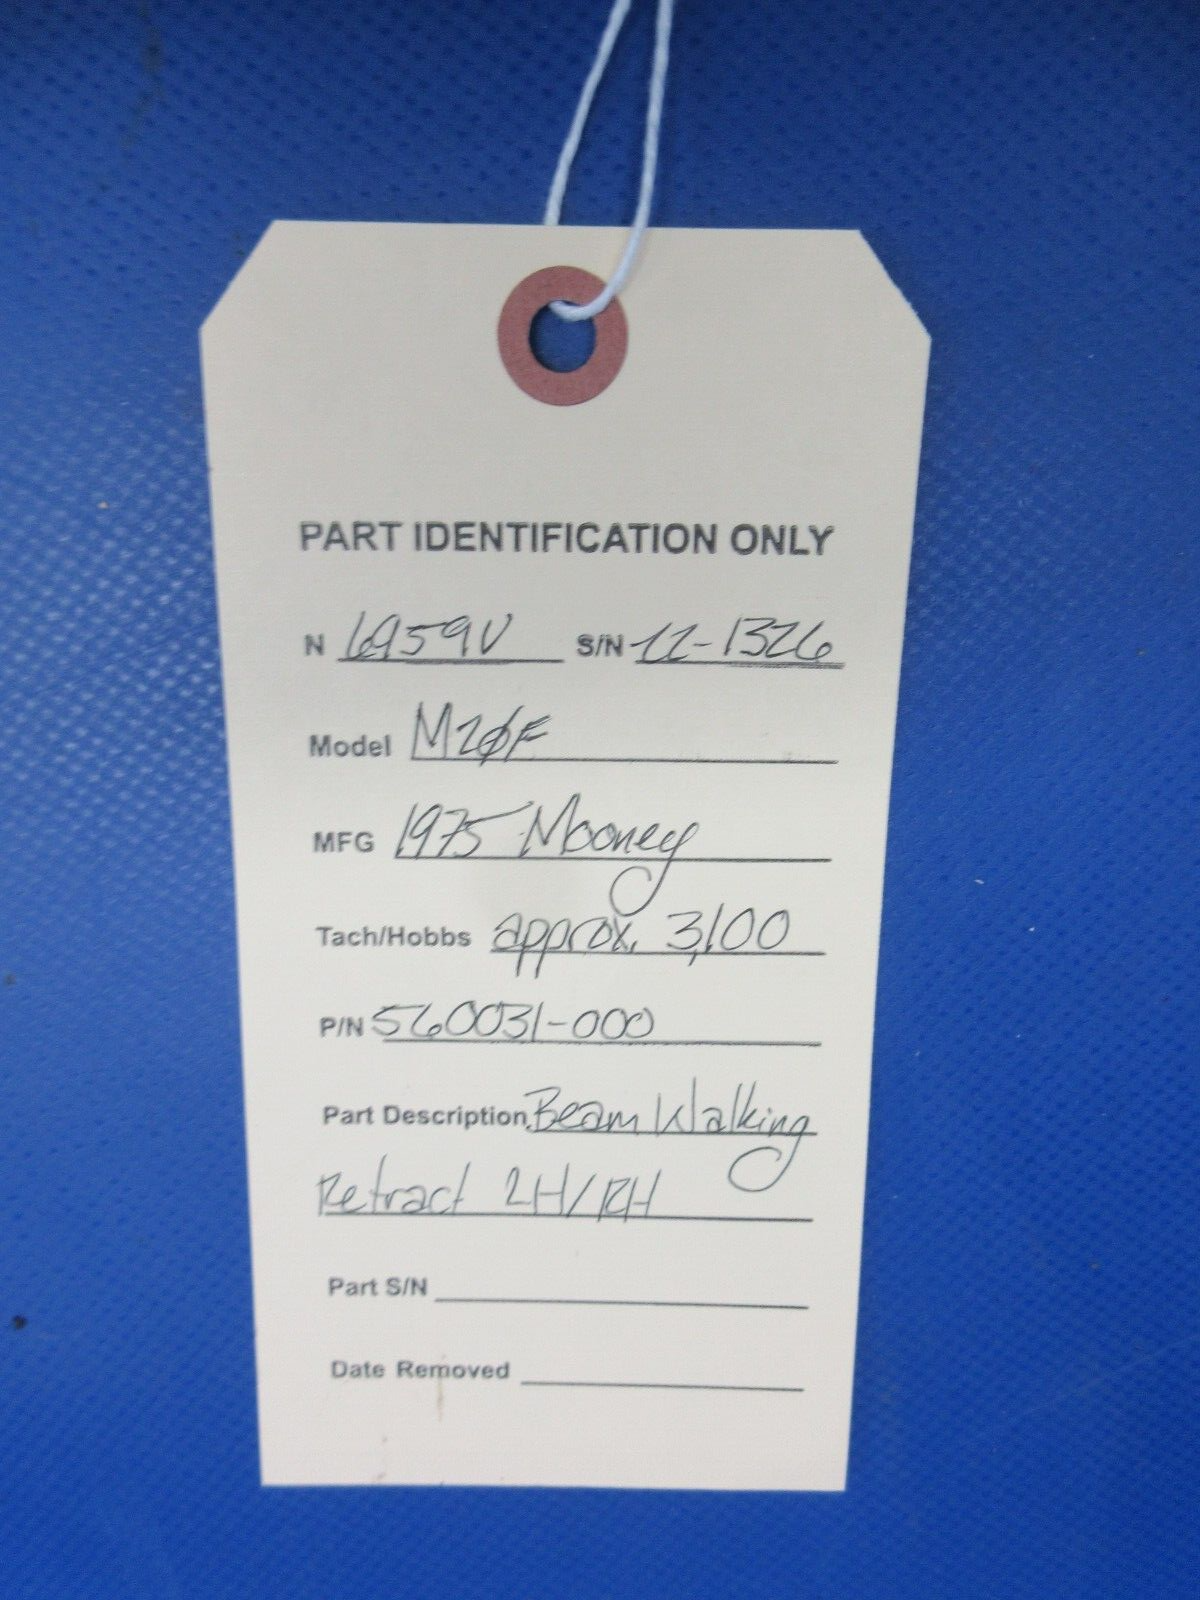 PART IDENTIFICATION ONLY
N 6959V S/N 22-1326
Model M20F
MFG 1975 Mooney
Tach/Hobbs approx. 3,100
P/N 560031-000
Part Description Beam Walking
Retract LH/RH
Part S/N
Date Removed